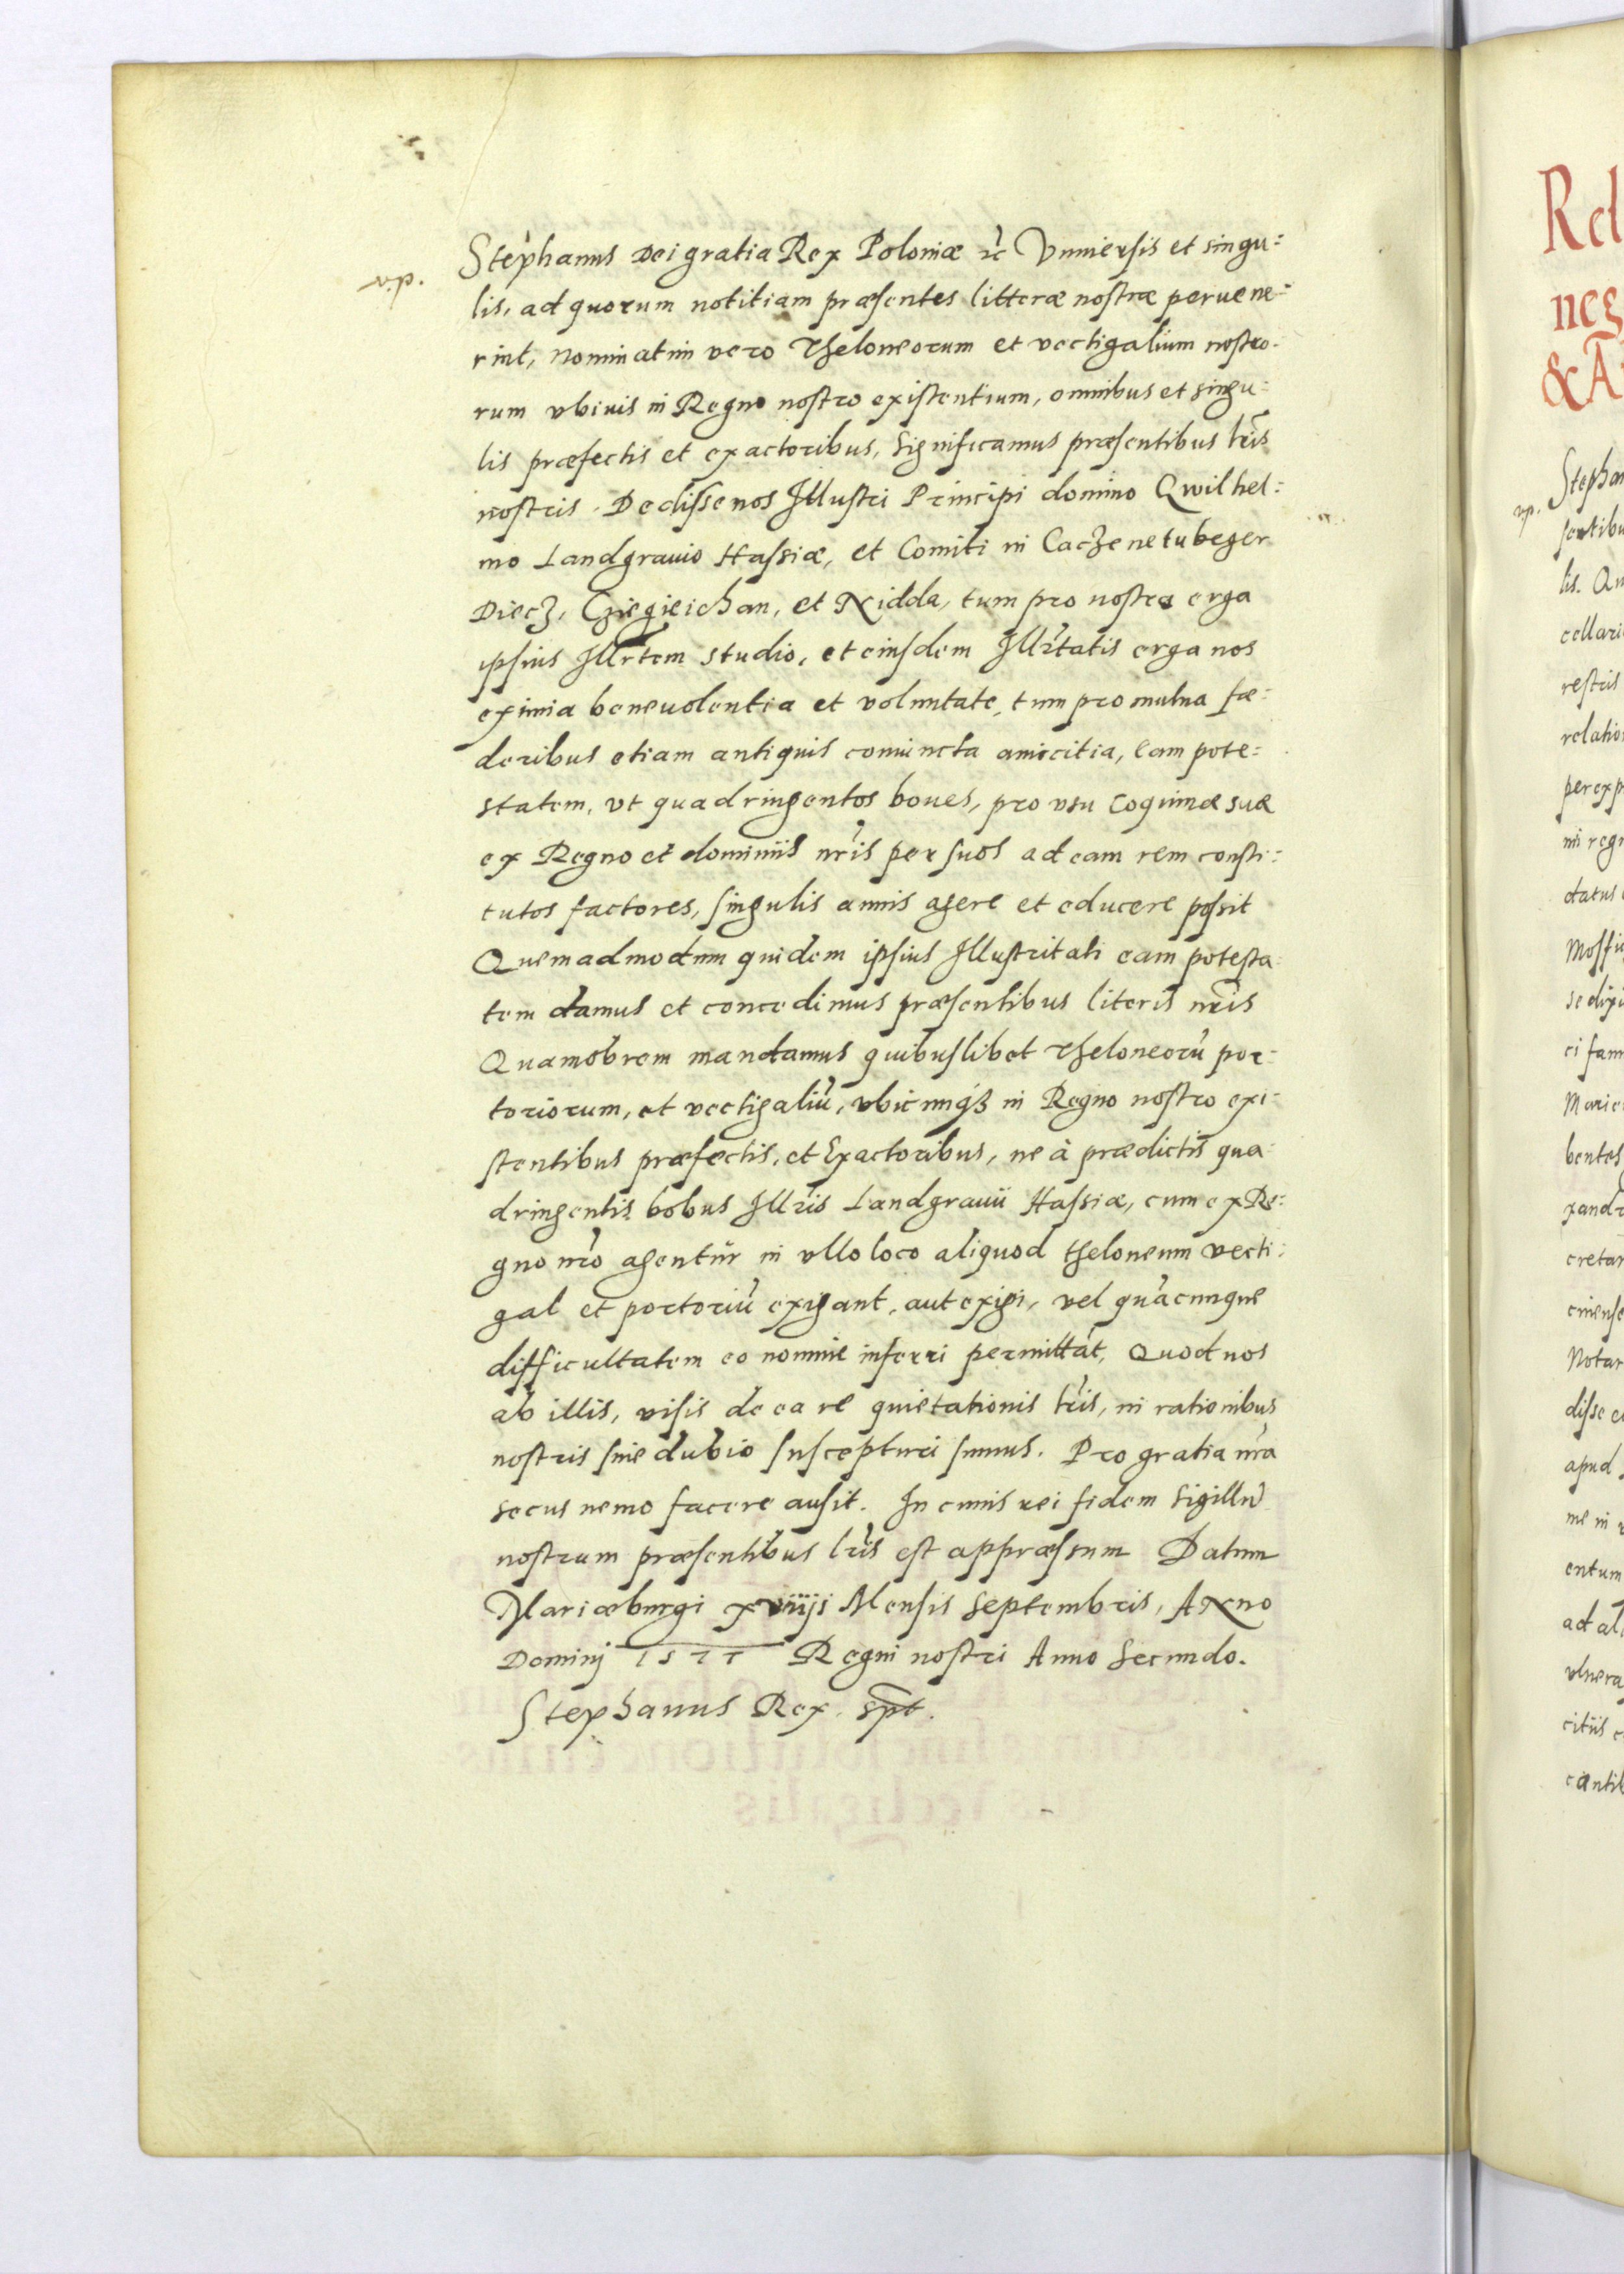 v.p.
Stephanus Dei gratia Rex Poloniæ rc̃ Vniuersis et singu=
lis, ad quorum notitiam præsentes litteræ nostræ peruene=
rint, nominatim vero Theloneorum et vectigalium nostro-
rum vbiuis in Regno nostro existentium, omnibus et singu=
lis præfectis et exactoribus, Significamus præsentibus lr̃is
nostris. Dedisse nos Illustri Principi domino Qwilhel=
mo Landgrauio Hassiæ, et Comiti in Caczenetubeger
Diecz, Cziegieichan, et Nidda, tum pro nostro erga
ipsius Illrtem studio, et eiusdem Illr̃tatis erga nos
eximia beneuolentia et voluntate, tum pro mutua fæ=
deribus etiam antiquis coniuncta amicitia, Eam pote=
statem, vt quadringentos boues, pro vsu Coquinæ suæ
ex Regno et dominiis nr̃is per suos ad eam rem consti=
tutos factores, singulis annis agere et educere possit
Quemadmodum quidem ipsius Illustritati eam potesta=
tem damus et concedimus præsentibus literis nr̃is
Quamobrem mandamus quibuslibet Theloneorũ por=
toriorum, et vectigaliũ, vbicunqȝ in Regno nostro exi=
stentibus præfectis, et Exactoribus, ne à prædictis qua
dringentis bobus Illr̃is Landgrauii Hassiæ, cum ex Re=
gno nr̃o agentur in vllo loco aliquod theloneum vecti=
gal et portoriũ exigant, aut exigi, vel quãcunque
difficultatem eo nomine inferri permittãt, Quod nos
ab illis, visis de ea re quietationis lr̃is, in rationibus
nostris sine dubio suscepturi sumus. Pro gratia nr̃a
secus nemo facere ausit. In cuius rei fidem Sigillũ
nostrum præsentibus lr̃is est appræssum Datum
Mariæburgi xviiij Mensis Septembris, Anno
Dominj 1577 Regni nostri Anno Secundo.
Stephanus Rex. sp̃t.
Rel
neg
& A
v.p.
Stephan
sentibu
lis. Qu
cellari
restris
relatio
per exp
ni regn
datus
Moffi
se dixi
ci fam
Marie
bentes
xandr
cretar
ciense
Notar
disse e
apud
me in
entum
ad al
vlnera
citiis c
cantib